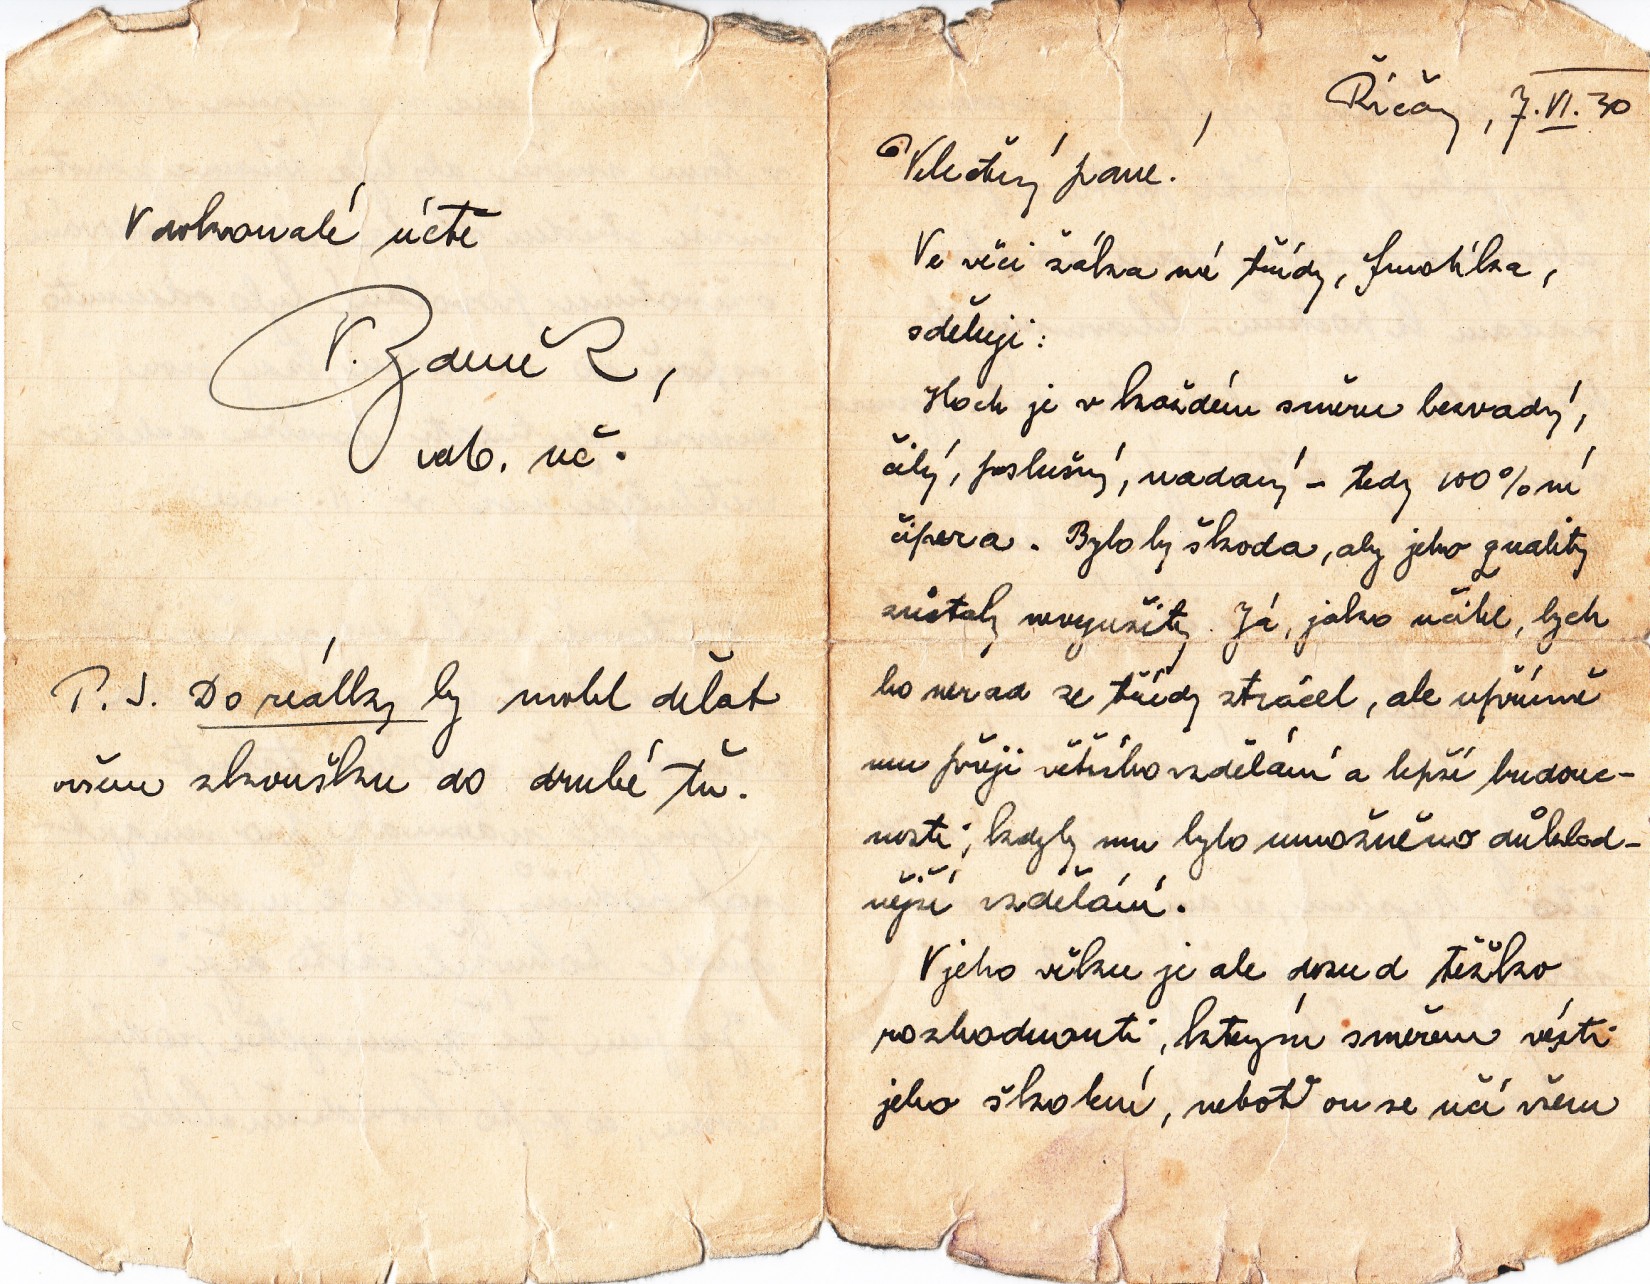 Říčany, 7.VI.30
Velectěný pane!
Ve věci žáka mé třídy,
sděluji:
Hoch je v každém směru bezvadný,
čilý, poslušný, nadaný – tedy 100%ní
čipera. Bylo by škoda, aby jeho quality
zůstaly nevyužity. Já, jako učitel, bych
ho nerad ze třídy ztrácel, ale upřímně
mu přeji většího vzdělání a lepší budouc-
nosti, kdyby mu bylo umožněno důklad-
nější vzdělání.
V jeho věku je ale dosud těžko
rozhodnouti, kterým směrem vésti
jeho školení, neboť on se učí všemu
V dokonalé úctě
V.
odb. uč.
P. S. Do reálky by mohl dělat
ovšem zkoušku do druhé tř.